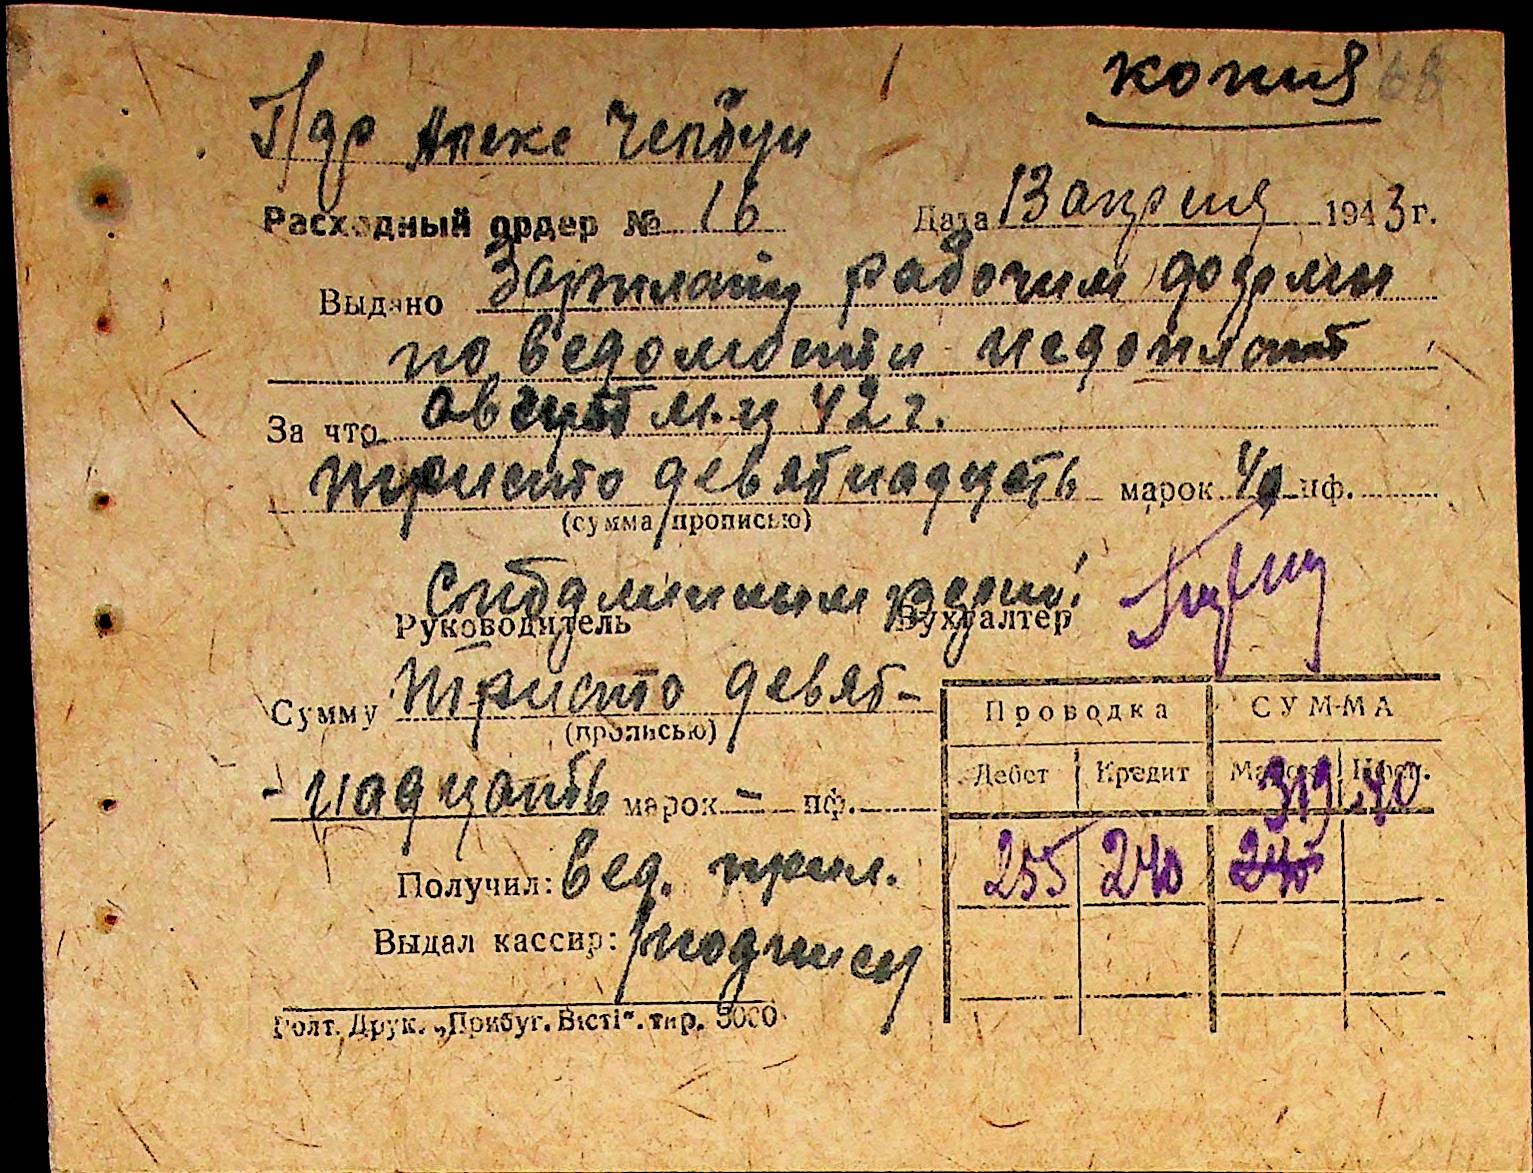 копия 68
Пдр Алекс
Расходный ордер № 16 Дата 13 апреля 1943 г.
Выдано Зарплату рабочим
по ведомости недоплат
За что август м-ц 42 г.
триста девятнадцать марок 40 пф.
(сумма прописью)
Руководитель Бухгалтер
Сумму триста девят-
(прописью)
-надцать марок - пф.
Проводка СУММА
Дебет Кредит Марок Пфен.
319 40
255 240 240
Получил: вед. прил.
Выдал кассир: подписи
Болт. Друк. „Прибуг. Вісті". тир. 3000